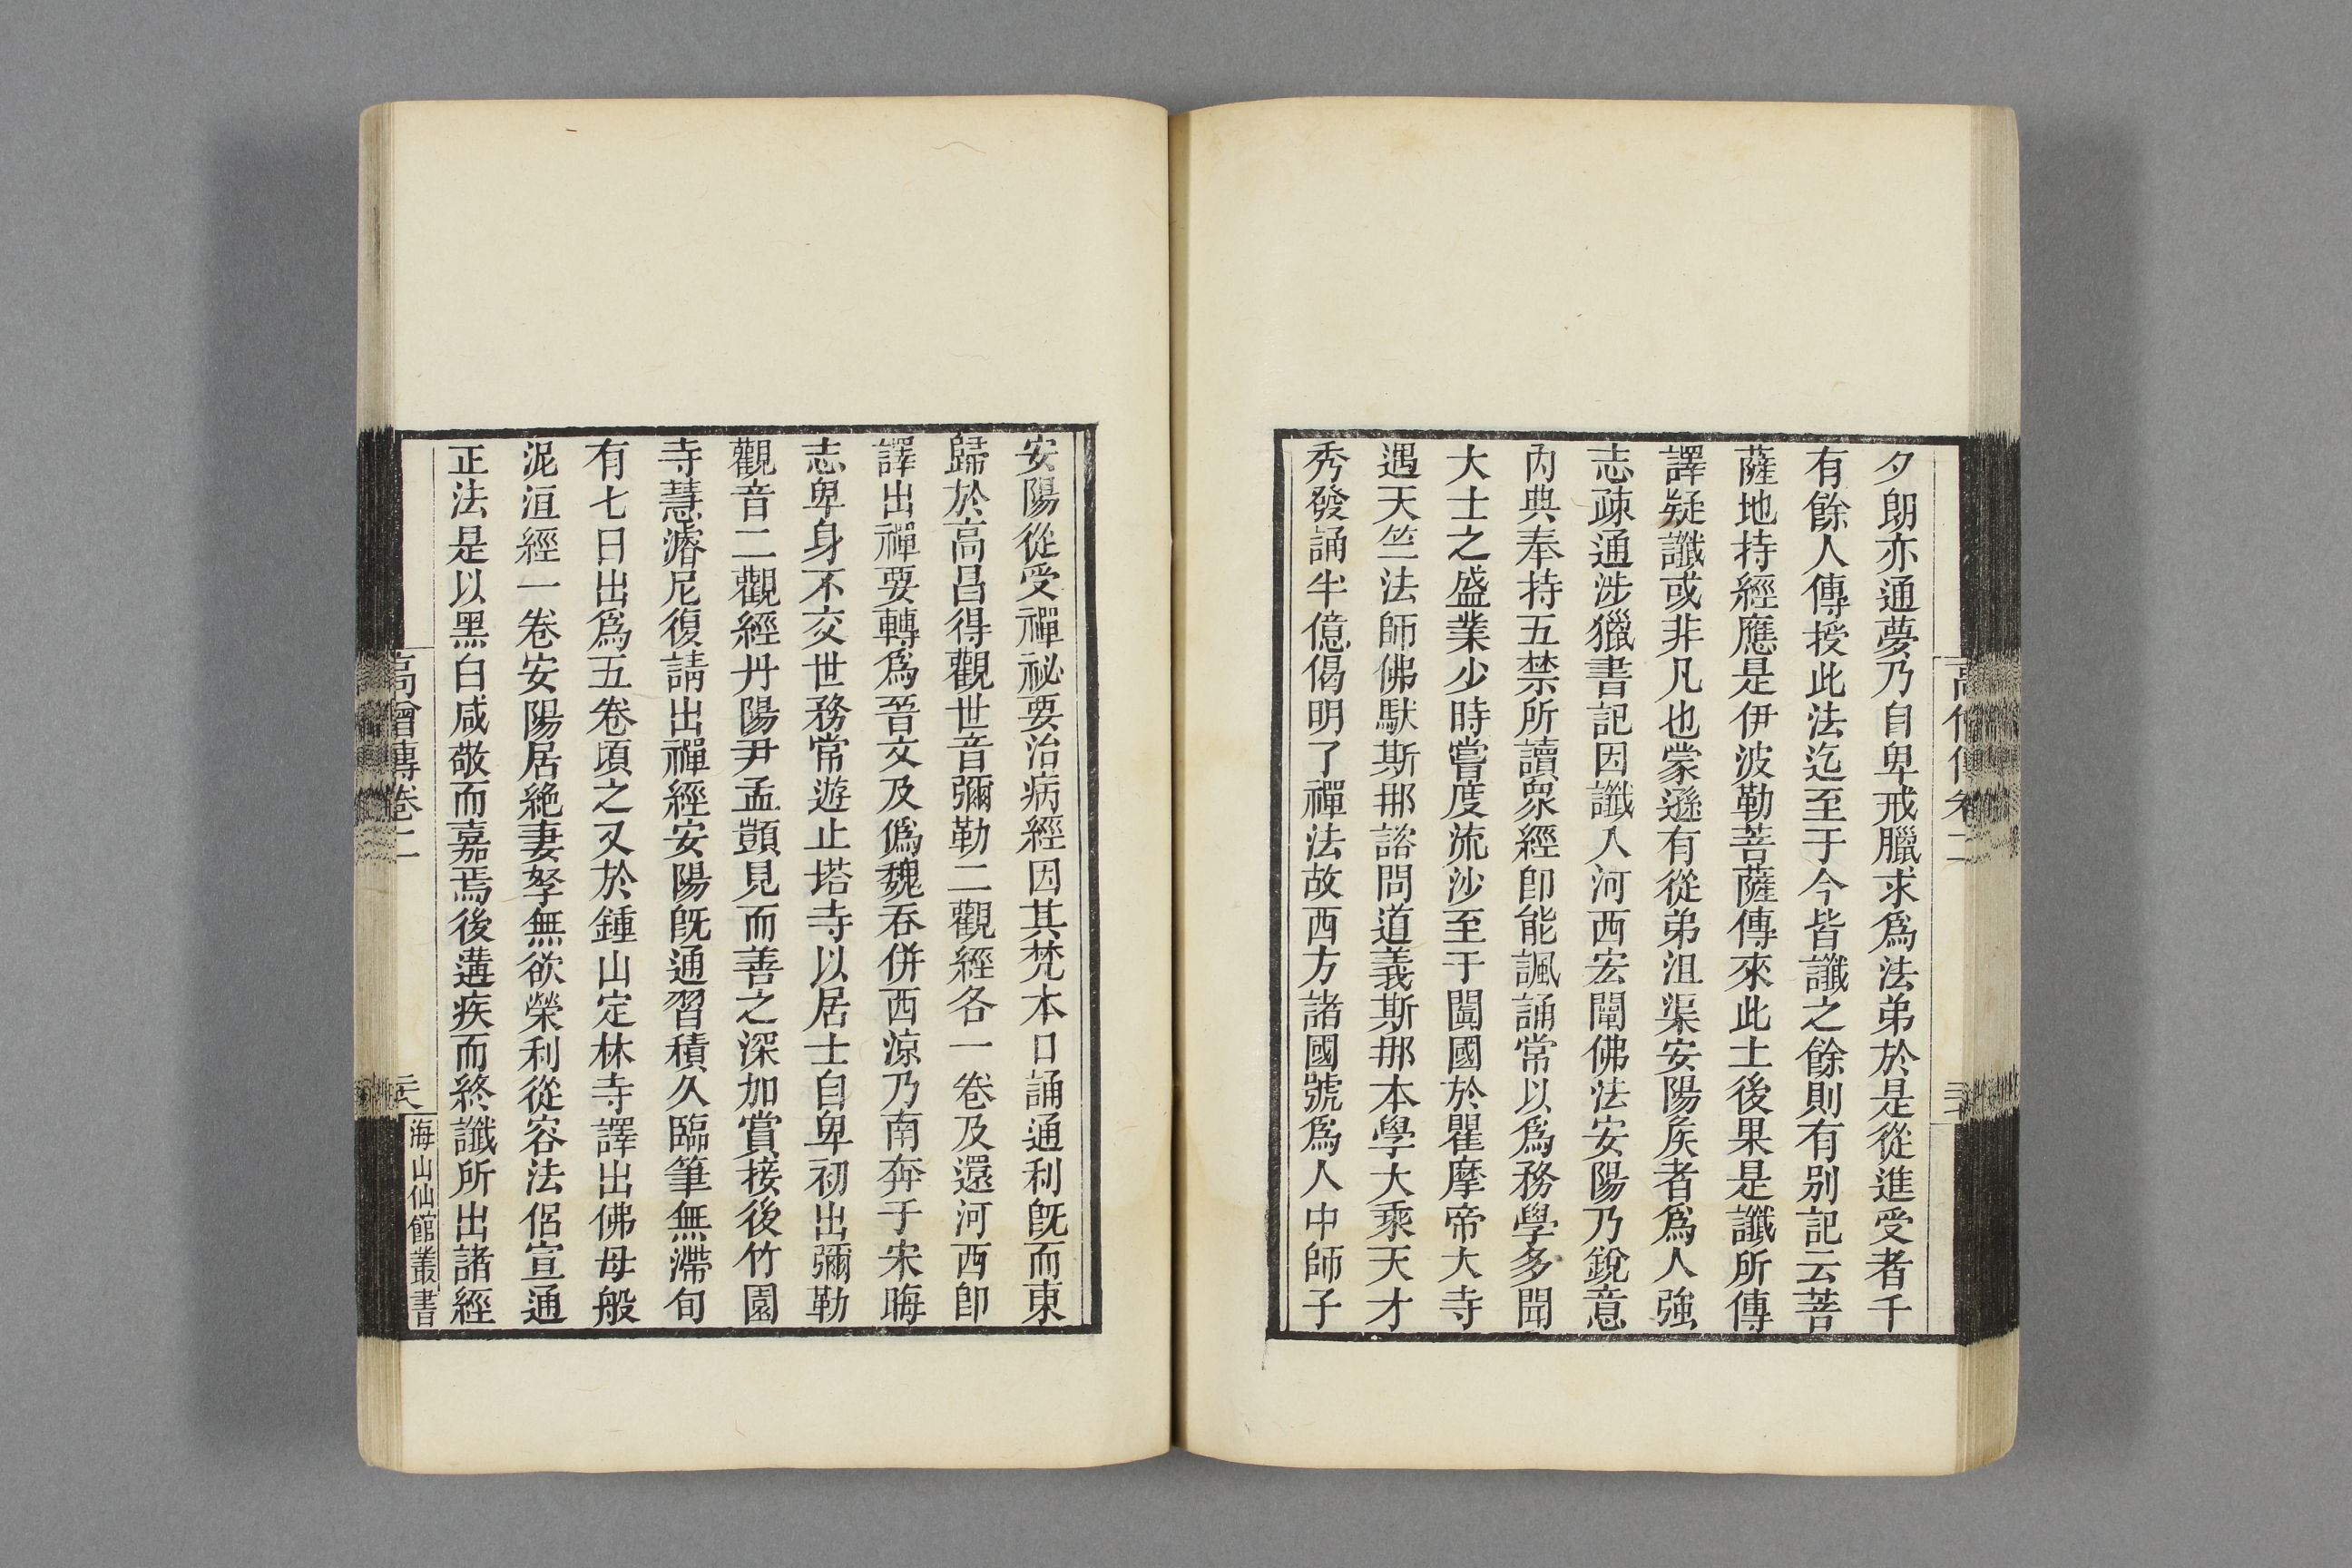 夕朗亦通夢乃自卑戒臘求爲法弟於是從進受者千
有餘人傳授此法迄至于今皆讖之餘則有別記云菩
薩地持經應是伊波勒菩薩傳來此土後果是讖所傳
譯疑讖或非凡也蒙遜有從弟沮渠安陽矦者爲人強
志疎通涉獵書記因讖人河西宏闡佛法安陽乃銳意
內典奉持五禁所讀眾經卽能諷誦常以爲務學多聞
大士之盛業少時嘗度流沙至于闐國於瞿摩帝大寺
遇天竺法師佛馱斯那諮問道義斯那本學大乘天才
秀發誦半億偈明了禪法故西方諸國號爲人中師子
安陽從受禪祕要治病經因其梵本口誦通利旣而東
歸於高昌得觀世音彌勒二觀經各一卷及還河西卽
譯出禪要轉爲晉文及僞魏吞併西涼乃南奔于宋晦
志卑身不交世務常遊止塔寺以居士自卑初出彌勒
觀音二觀經丹陽尹孟顗見而善之深加賞接後竹園
寺慧濬尼復請出禪經安陽旣通習積久臨筆無滯旬
有七日出爲五卷頃之又於鍾山定林寺譯出佛母般
泥洹經一卷安陽居絶妻孥無欲榮利從容法侶宣通
正法是以黑白咸敬而嘉焉後遘疾而終讖所出諸經
高僧傳卷二
海山仙館叢書